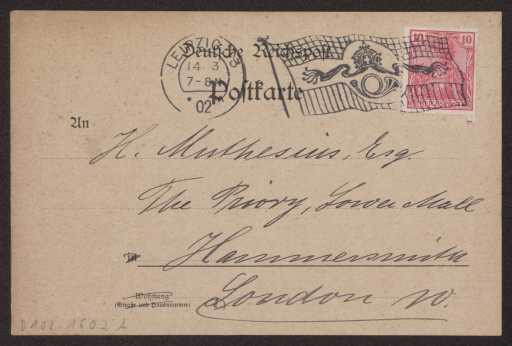 Deutsche Reichspost
LEIPZIG
14. 3
7-8 N
* 02
10 10
Postkarte
An
H. Muthesius, Esq.
The Priory, Lower Mall
in Hammersmith
London W.
Wohnung
(Straße und Hausnummer)